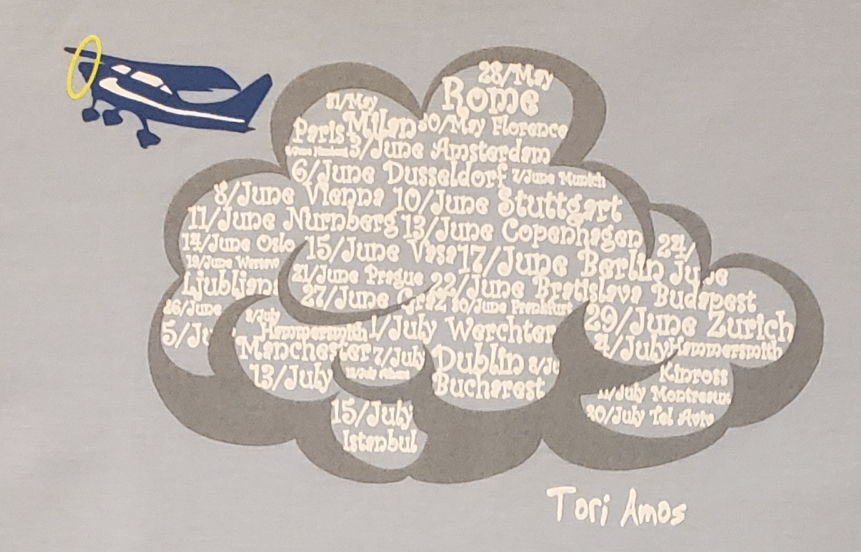 28/May
31/May Rome
Paris Milan 30/May Florence
3/June Amsterdam
6/June Dusseldorf 7/June Munich
8/June Vienna 10/June Stuttgart
11/June Nurnberg 13/June Copenhagen
14/June Oslo 15/June Vasa 17/June Berlin 24/June
Ljubljana 21/June Prague 22/June Bratislava Budapest
26/June 27/June Graz 30/June Frankfurt 29/June Zurich
5/Ju Hammersmith 1/July Werchter 4/July Hammersmith
Manchester 7/July Dublin 8/Ju Kinross
13/July Bucharest 11/July Montreux
15/July 20/July Tel Aviv
Istanbul
Tori Amos